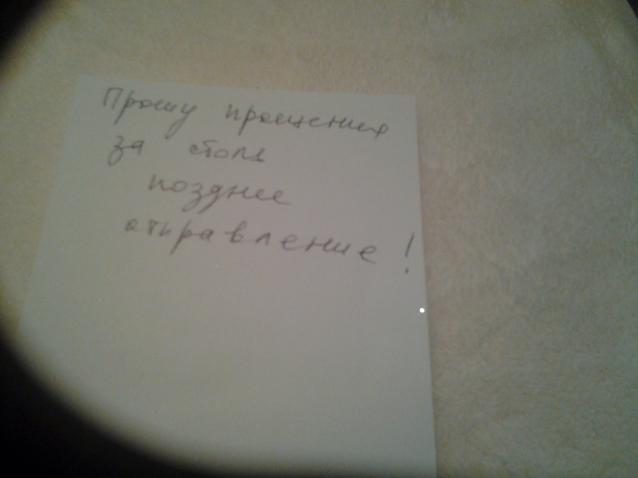 Прошу прощения
за столь
позднее
отправление!